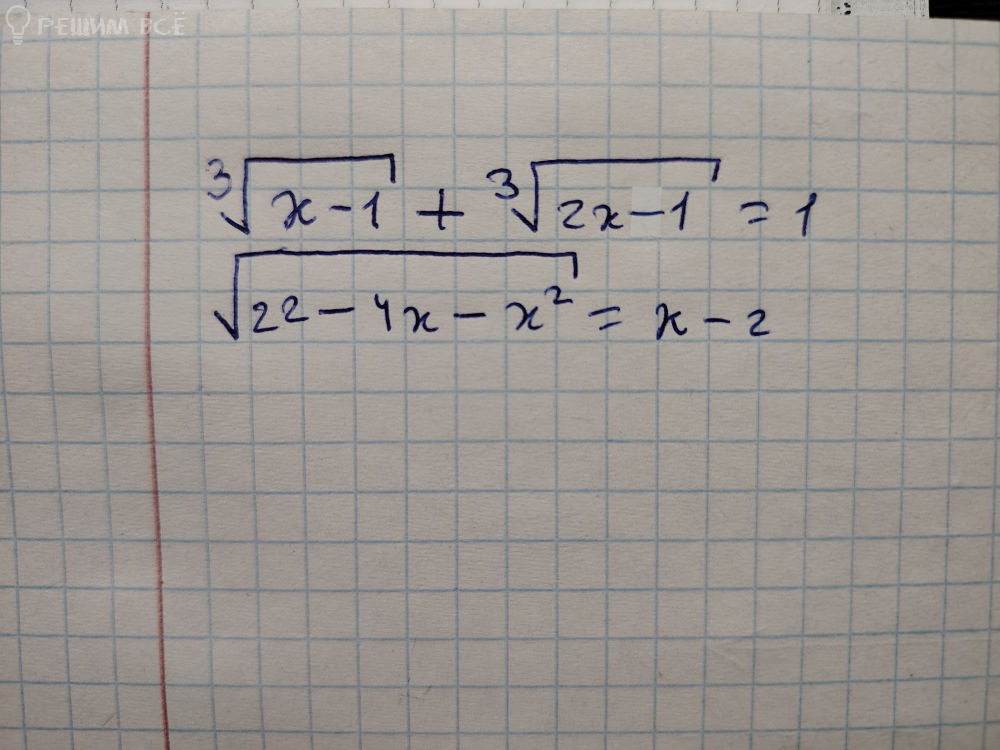 РЕШИМ ВСЁ
∛(x-1) + ∛(2x-1) = 1
√(22-4x-x²) = x-2